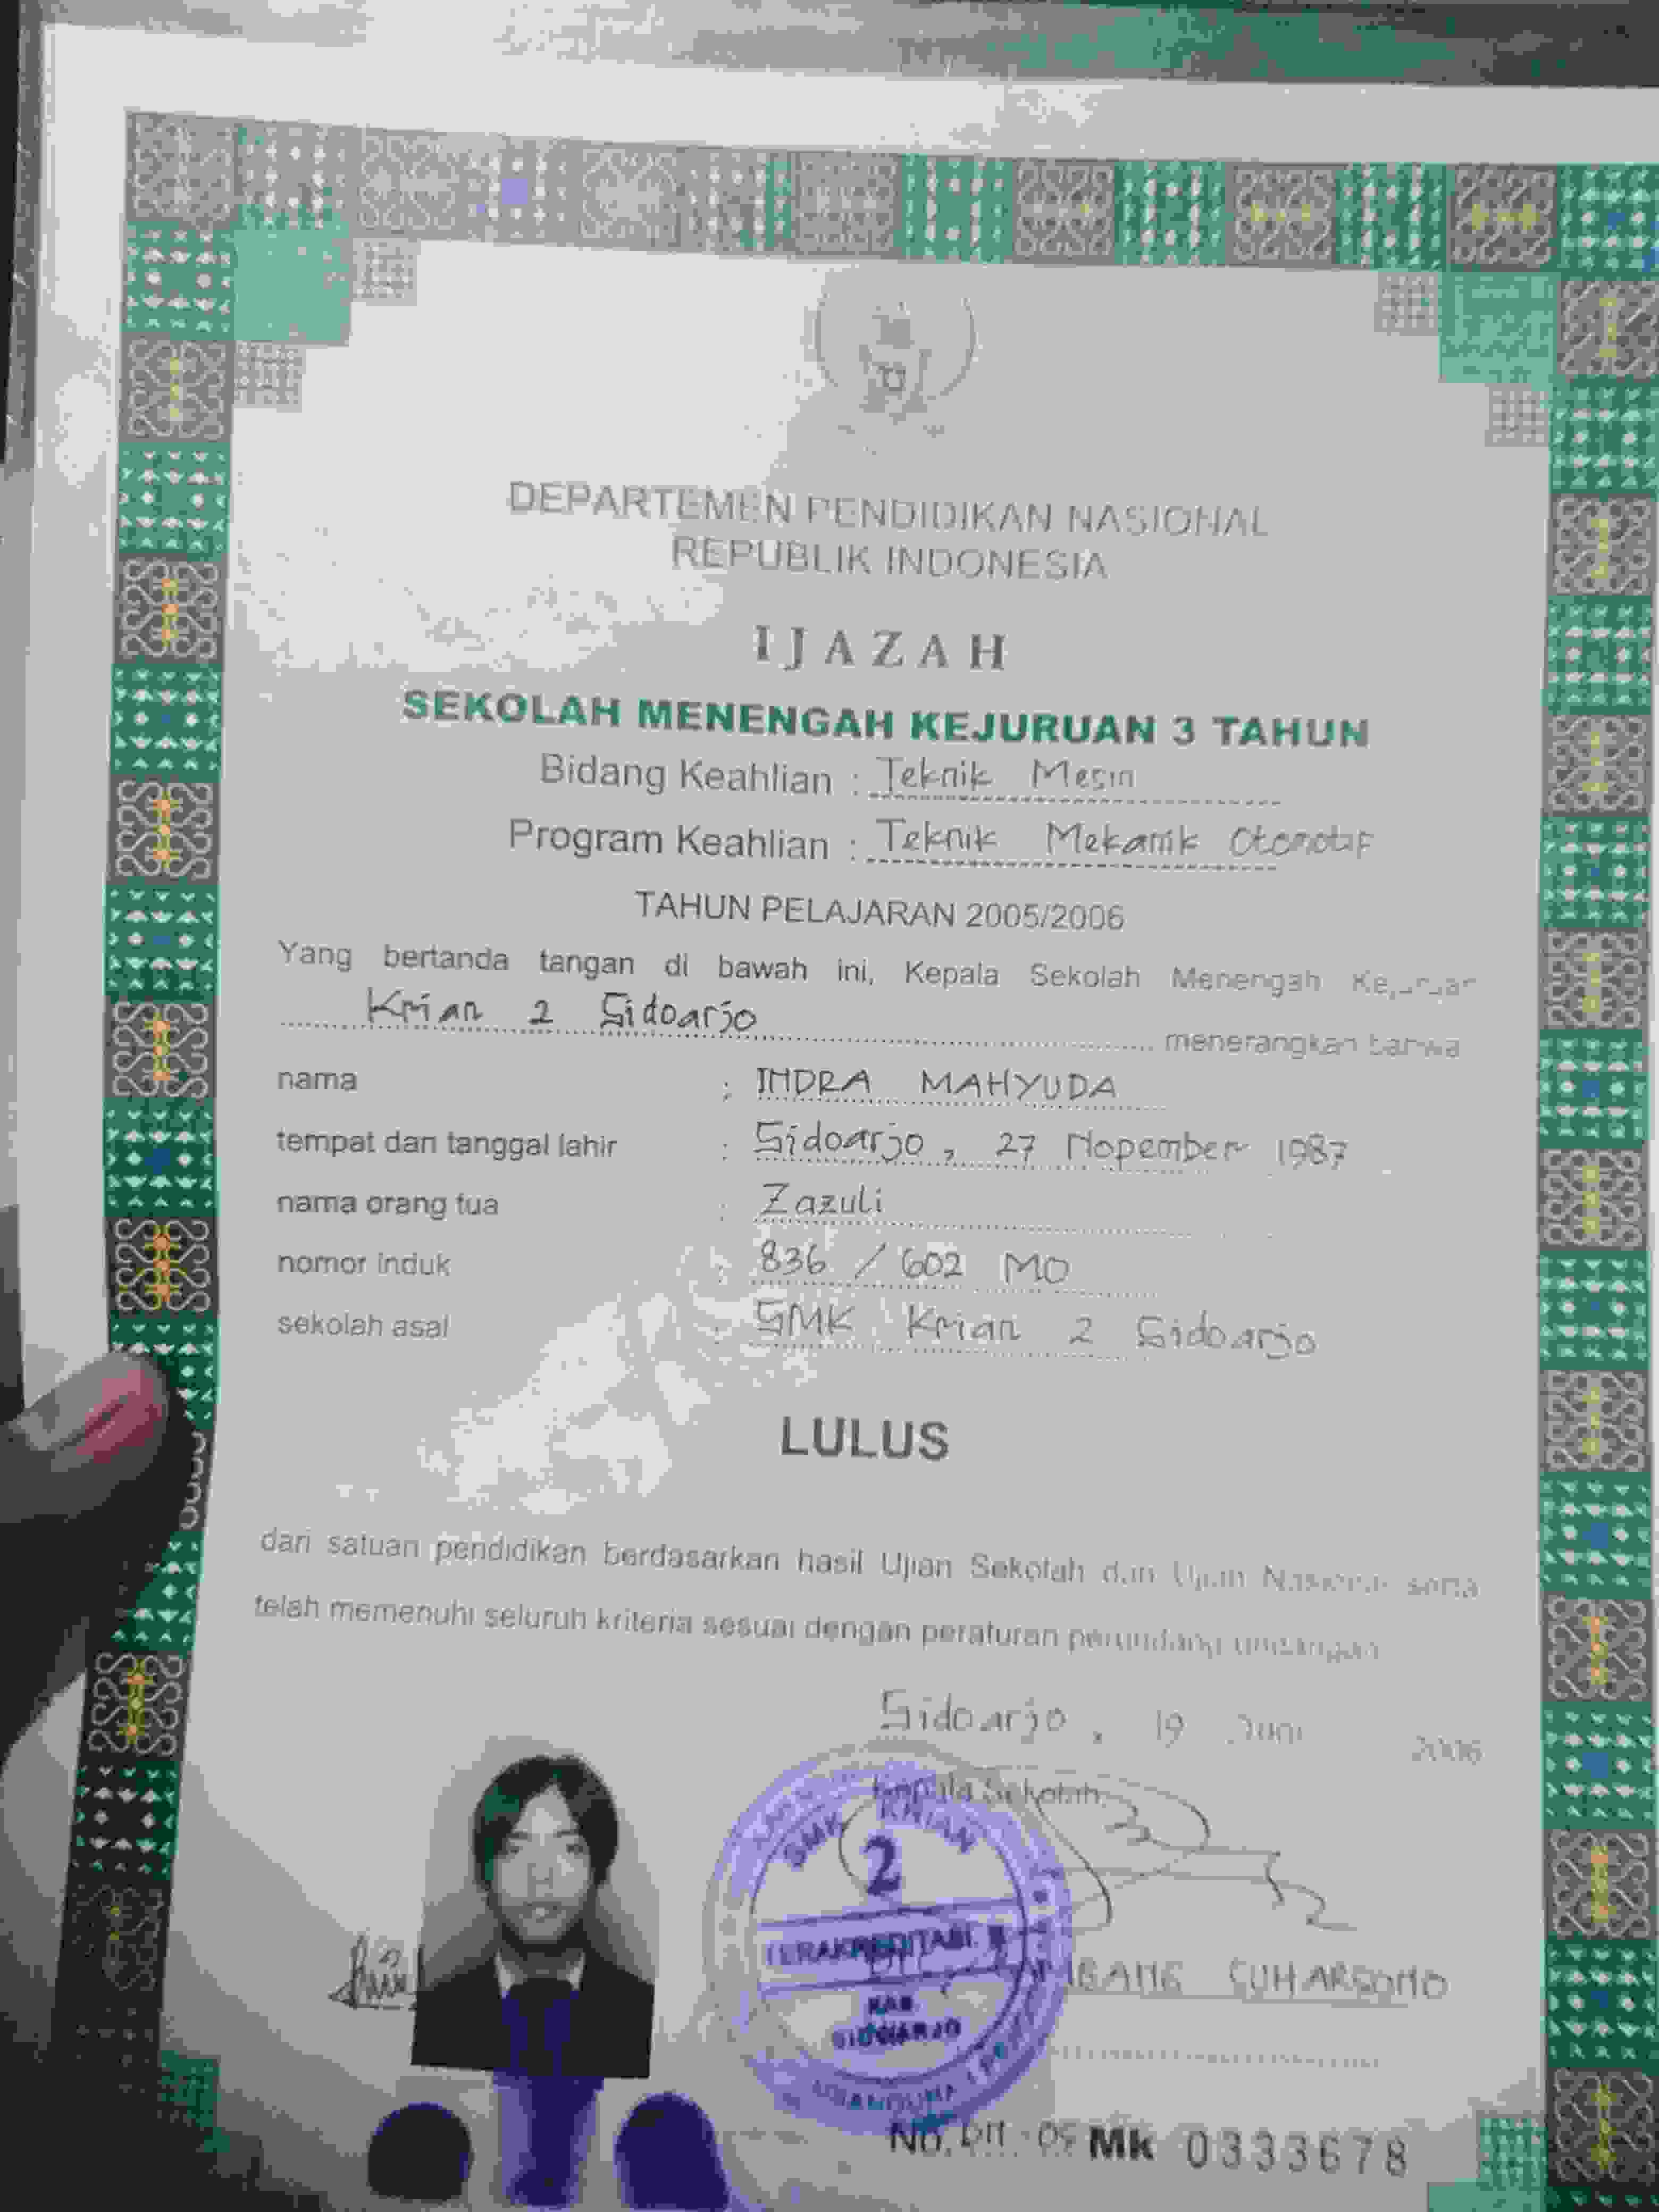 DEPARTEMEN PENDIDIKAN NASIONAL
REPUBLIK INDONESIA
IJAZAH
SEKOLAH MENENGAH KEJURUAN 3 TAHUN
Bidang Keahlian : Teknik Mesin
Program Keahlian : Teknik Mekanik Otomotif
TAHUN PELAJARAN 2005/2006
Yang bertanda tangan di bawah ini, Kepala Sekolah Menengah Kejuruan
Krian 2 Sidoarjo menerangkan bahwa
nama : INDRA MAHYUDA
tempat dan tanggal lahir : Sidoarjo, 27 Nopember 1987
nama orang tua : Zazuli
nomor induk : 836 / 602 MO
sekolah asal : SMK Krian 2 Sidoarjo
LULUS
dari satuan pendidikan berdasarkan hasil Ujian Sekolah dan Ujian Nasional serta
telah memenuhi seluruh kriteria sesuai dengan peraturan perundang-undangan
Sidoarjo, 19 Juni 2006
Kepala Sekolah
SMK KRIAN
2
TERAKREDITASI
KAB.
SIDOARJO
SUHARSONO
No. Mk 0333678